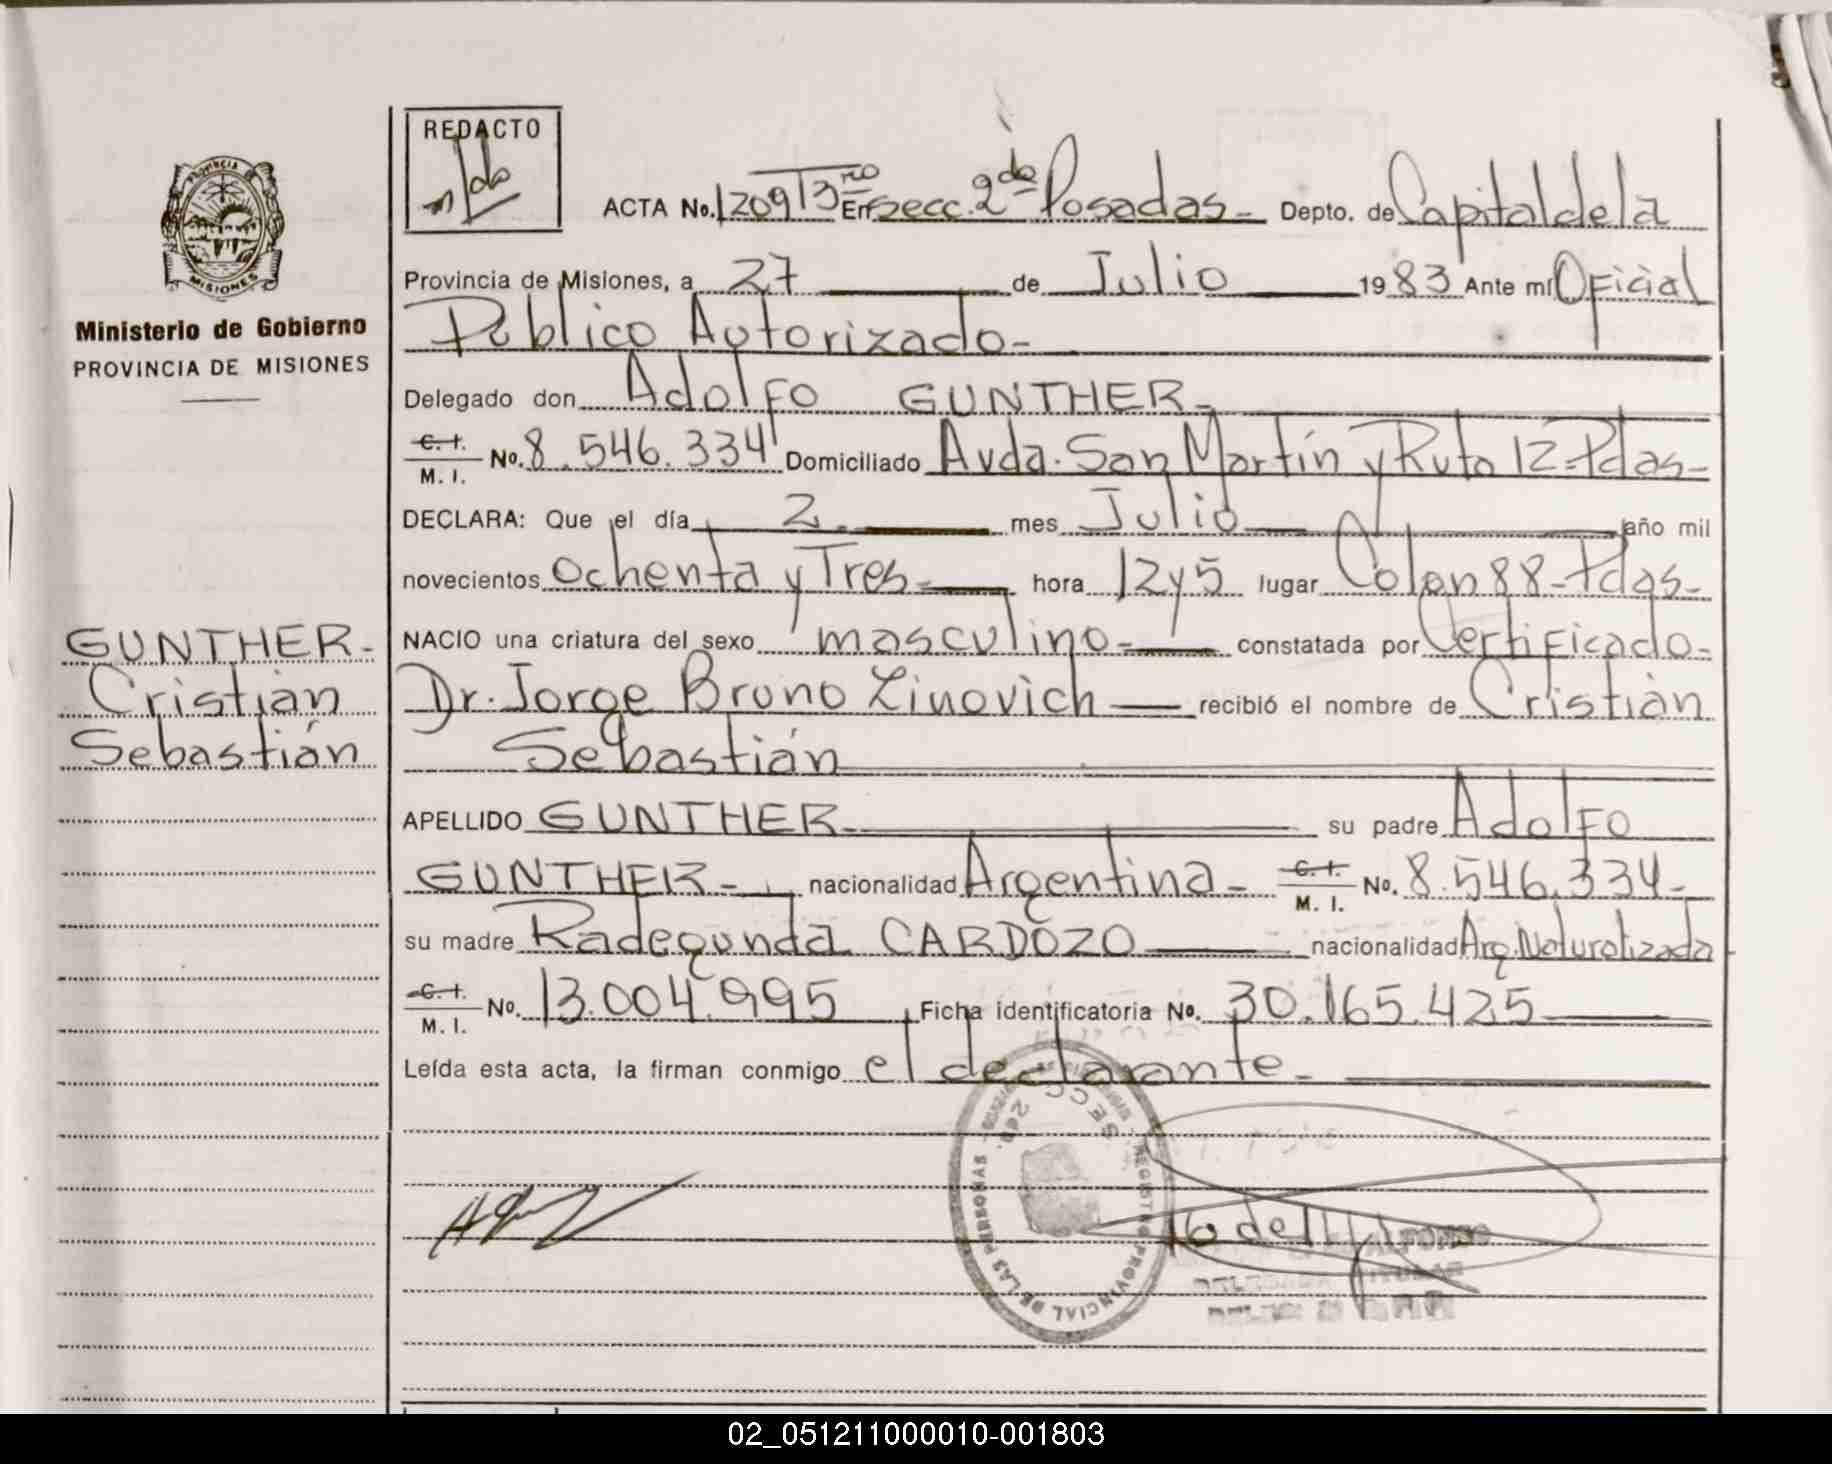 REDACTO
PROVINCIA
MISIONES
Ministerio de Gobierno
PROVINCIA DE MISIONES
GUNTHER-
Cristian
Sebastián
ACTA No. 1209 T 3ro En Secc. 2da Posadas- Depto. de Capital de la
Provincia de Misiones, a 27 de Julio 1983 Ante mí Oficial
Público Autorizado-
Delegado don Adolfo GUNTHER-
C. I. / M. I. No. 8.546.334 Domiciliado Avda. San Martín y Ruta 12-Pdas-
DECLARA: Que el día 2. mes Julio año mil
novecientos ochenta y Tres- hora 12 y 5 lugar Colon 88-Pdas-
NACIO una criatura del sexo masculino- constatada por Certificado-
Dr. Jorge Bruno Zinovich recibió el nombre de Cristian
Sebastián
APELLIDO GUNTHER- su padre Adolfo
GUNTHER- nacionalidad Argentina- C. I. / M. I. No. 8.546.334-
su madre Radegunda CARDOZO nacionalidad Arg. Naturalizada
C. I. / M. I. No. 13.004.995 Ficha identificatoria No. 30.165.425
Leída esta acta, la firman conmigo el declarante-
REGISTRO PROVINCIAL DE LAS PERSONAS
SECC 2da
02_051211000010-001803